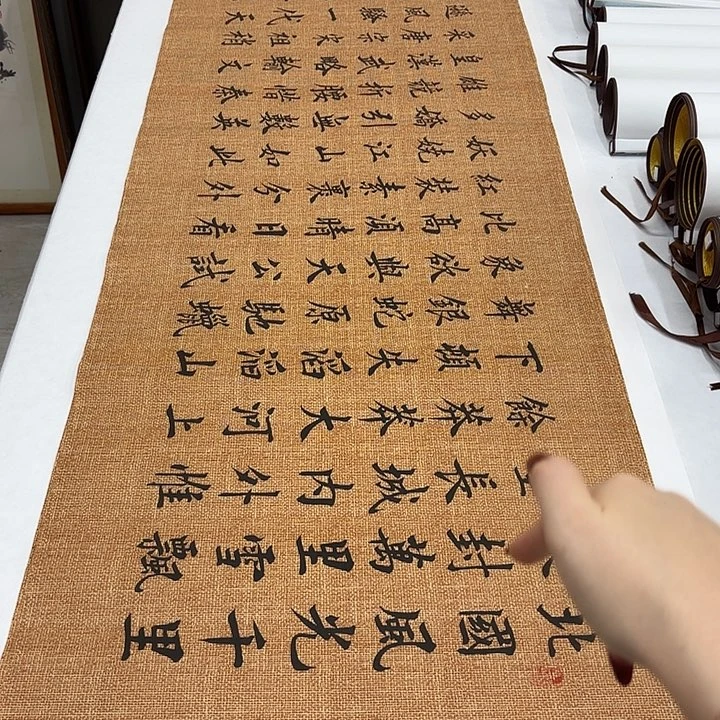 北國風光千里
封萬里雪飄
長城內外惟
餘莽莽大河上
下頓失滔滔山
舞銀蛇原馳蠟
象欲與天公試
比高須晴日看
紅裝素裹分外
妖嬈江山如此
多嬌引無數英
雄競折腰惜秦
皇漢武略輸文
采唐宗宋祖稍
遜風騷一代天